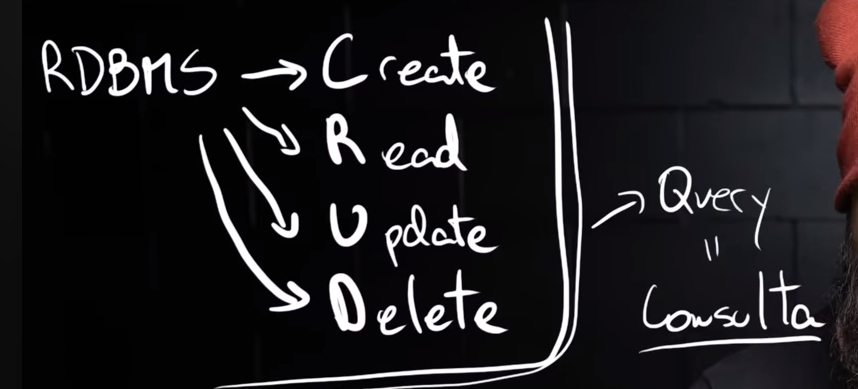 RDBMS → Create
Read
Update
Delete
→ Query
"
Consulta